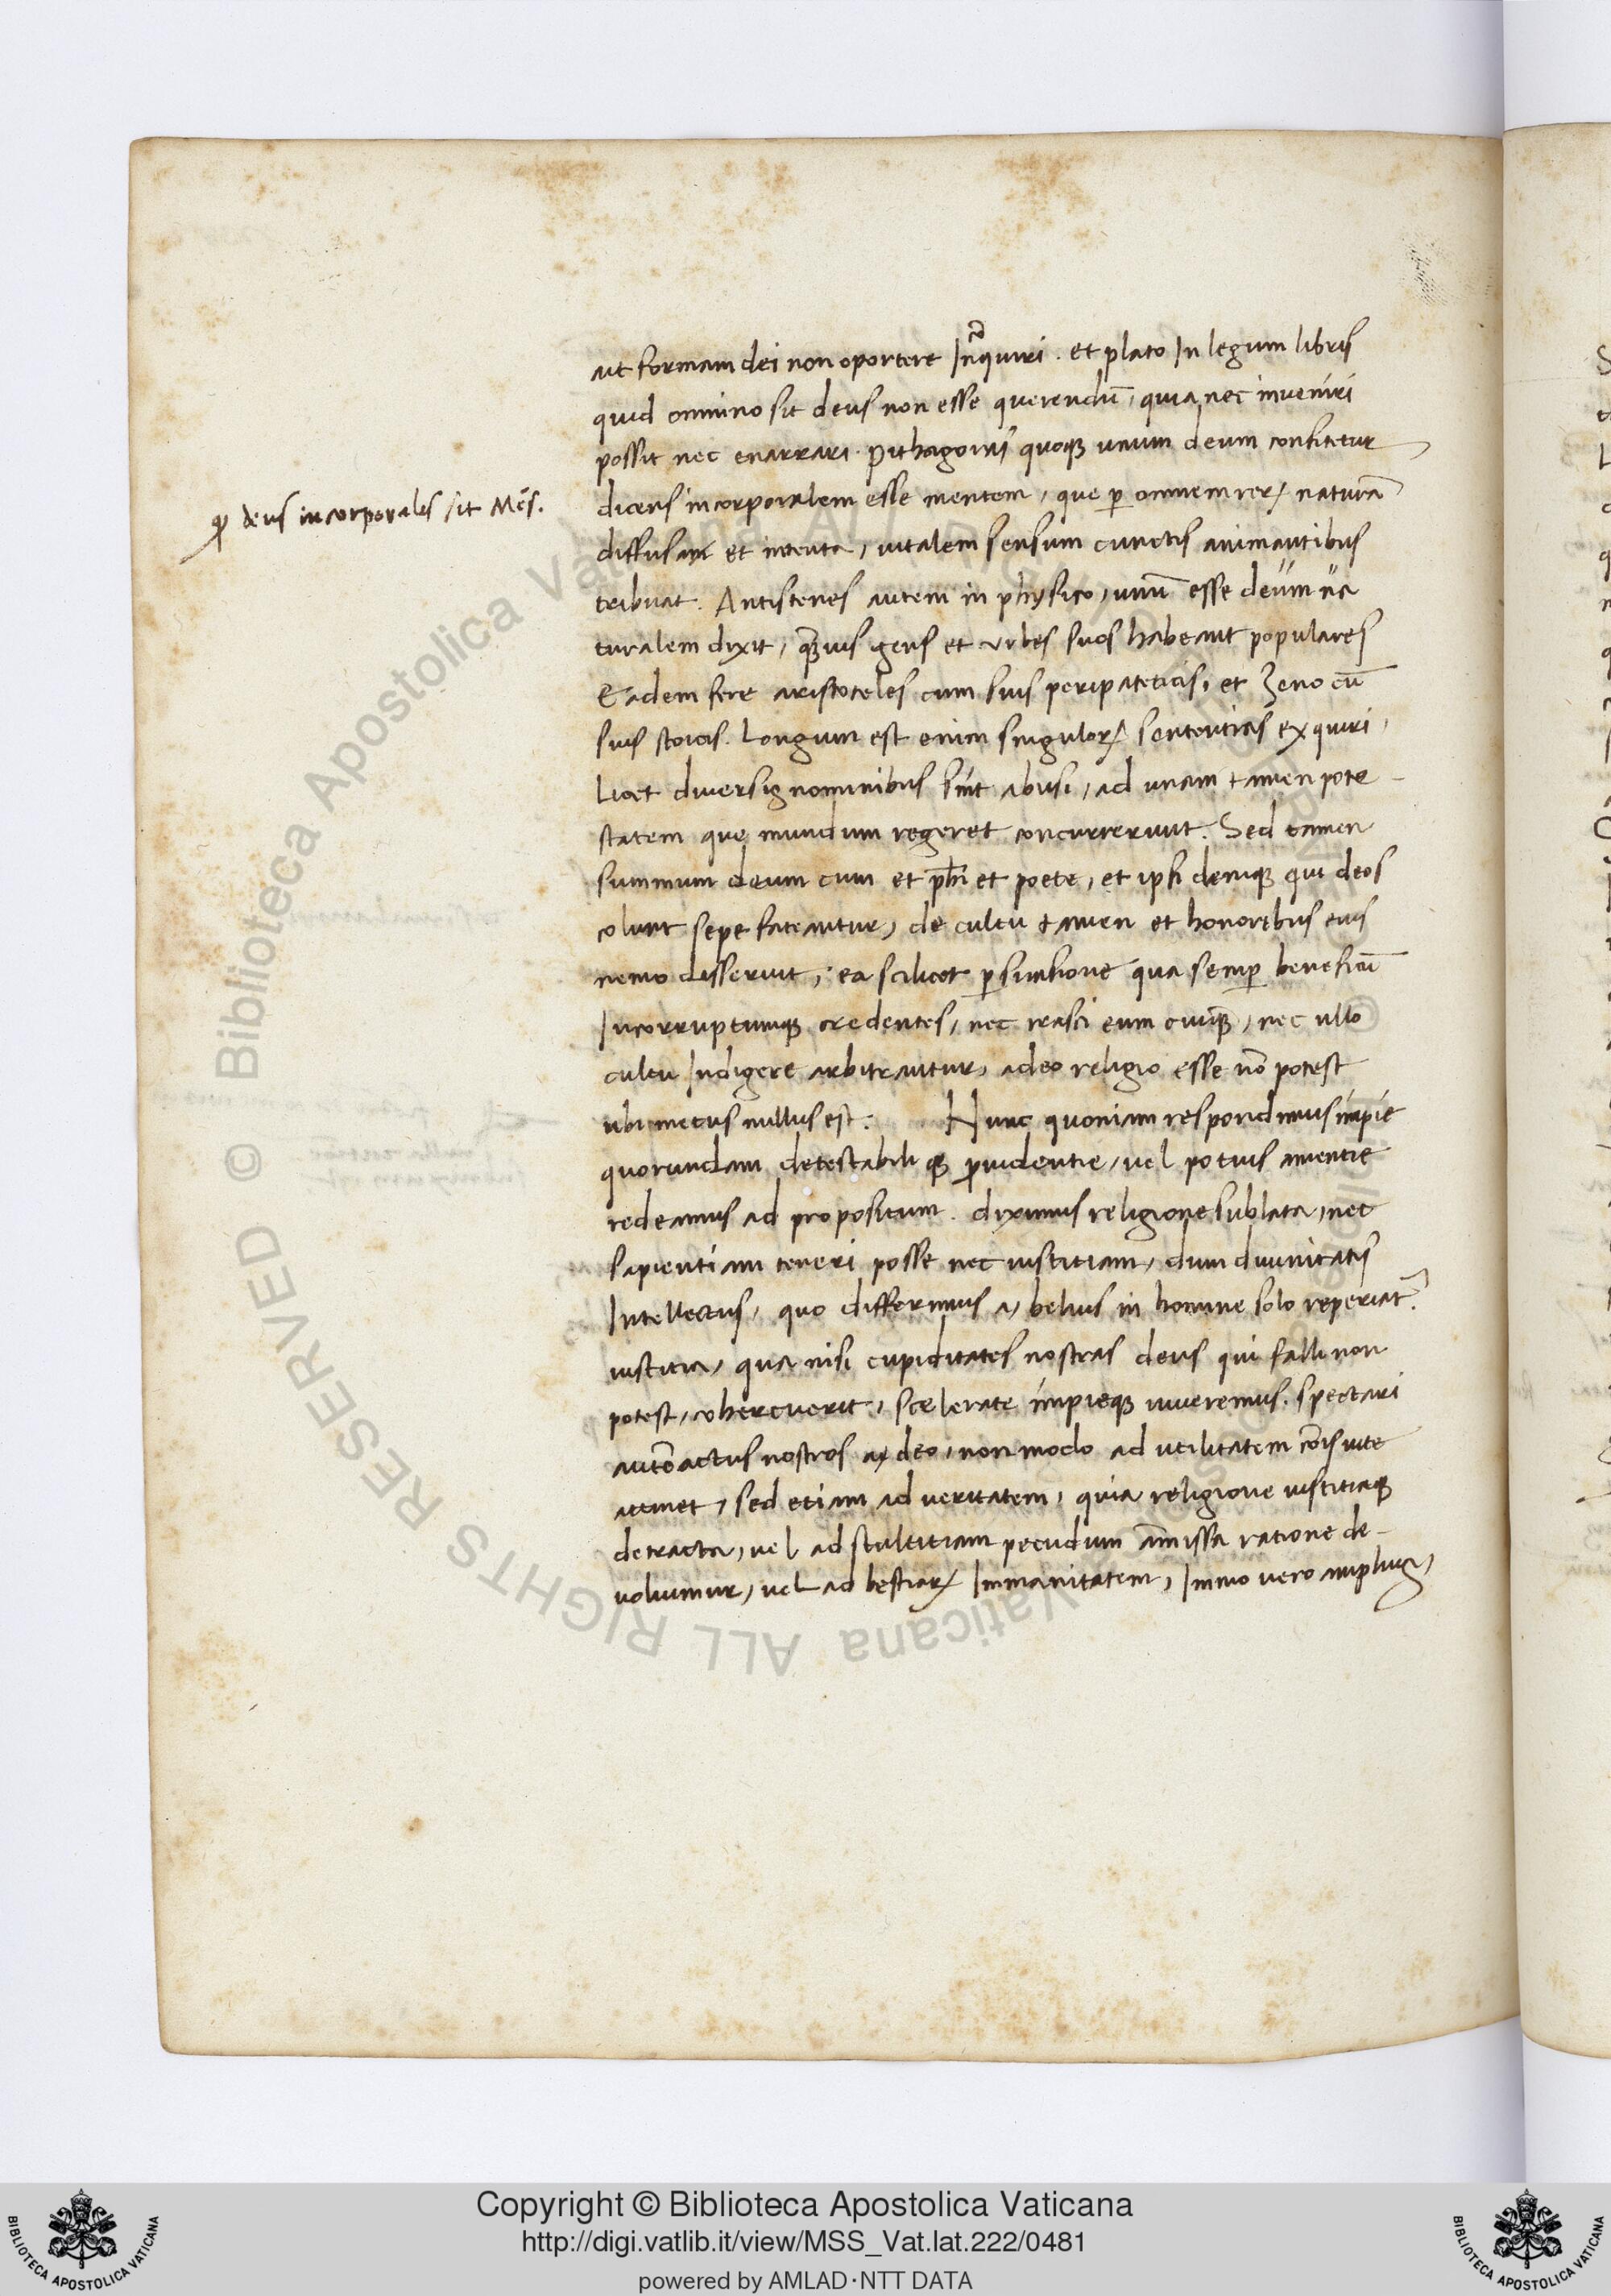 aut formam dei non oportere Inquiri . et plato In legum libris
quid omnino sit deus non esse querendū, quia nec inveniri
possit nec enarrari. Pithagoras quoq unum deum confitetur
ꝙ deus incorporalis sit Mēs.
dicens incorporalem esse mentem, que ꝑ omnem reꝝ naturā
diffusa et intenta, vitalem sensum cunctis animantibus
tribuat. Antistenes autem in physico, unū esse deum na
turalem dixit, q̄vis gens et urbes suos habeant populares
Eadem fere aristoteles cum suis peripateticis, et Zeno cū
suis stoicis. Longum est enim singuloꝝ sententias exquiri,
Licet diversis nominibus sint abusi, ad unam tamen pote-
statem que mundum regeret concurrerunt. Sed tamen
summum deum cum et phī et poete, et ipsi deniqꝫ qui deos
colunt sepe fateantur, de cultu tamen et honoribus eius
nemo disseruit, ea scilicet ꝑsuasione qua semꝑ beneficū
Incorruptumqꝫ credentes, nec irasci eum cuiqꝫ, nec ullo
cultu Indigere arbitrantur, adeo religio esse nō potest
ubi metus nullus est. Nunc quoniam respondimus impie
quorundam detestabiliqꝫ ꝓvidentie, vel potius amentie
redeamus ad propositum. diximus religione sublata, nec
sapientiam teneri posse nec iustitiam, dum divinitatis
Intellectus, quo differimus a, belvis in homine solo reperiat̄.
iustitia, quia nisi cupiditates nostras deus qui falli non
potest, cohercuerit, scelerate impieqꝫ viveremus. spectari
autē actus nostros a, deo, non modo ad utilitatem cōis vite
attinet, sed etiam ad veritatem, quia religione iustitiaqꝫ
detracta, vel ad stultitiam pecudum amissa ratione de-
volvimur, vel ad bestiaꝝ Immanitatem, Immo vero amplius,
© Biblioteca Apostolica Vaticana ALL RIGHTS RESERVED
Copyright © Biblioteca Apostolica Vaticana
http://digi.vatlib.it/view/MSS_Vat.lat.222/0481
powered by AMLAD·NTT DATA
BIBLIOTECA APOSTOLICA VATICANA
BIBLIOTECA APOSTOLICA VATICANA